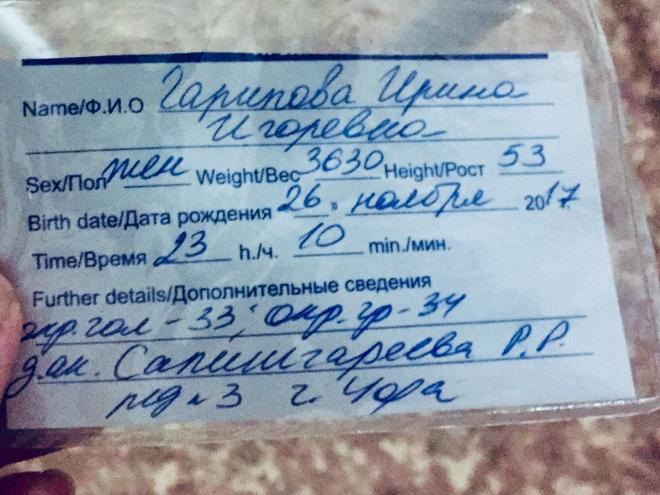 Name/Ф.И.О Гарипова Ирина
Игоревна
Sex/Пол жен Weight/Вес 3630 Height/Рост 53
Birth date/Дата рождения 26 " ноября 2017.
Time/Время 23 h./ч. 10 min./мин.
Further details/Дополнительные сведения
окр. гол - 33; окр. гр - 34
д.ак. Сапишгареева Р.Р.
рд № 3 г. Уфа